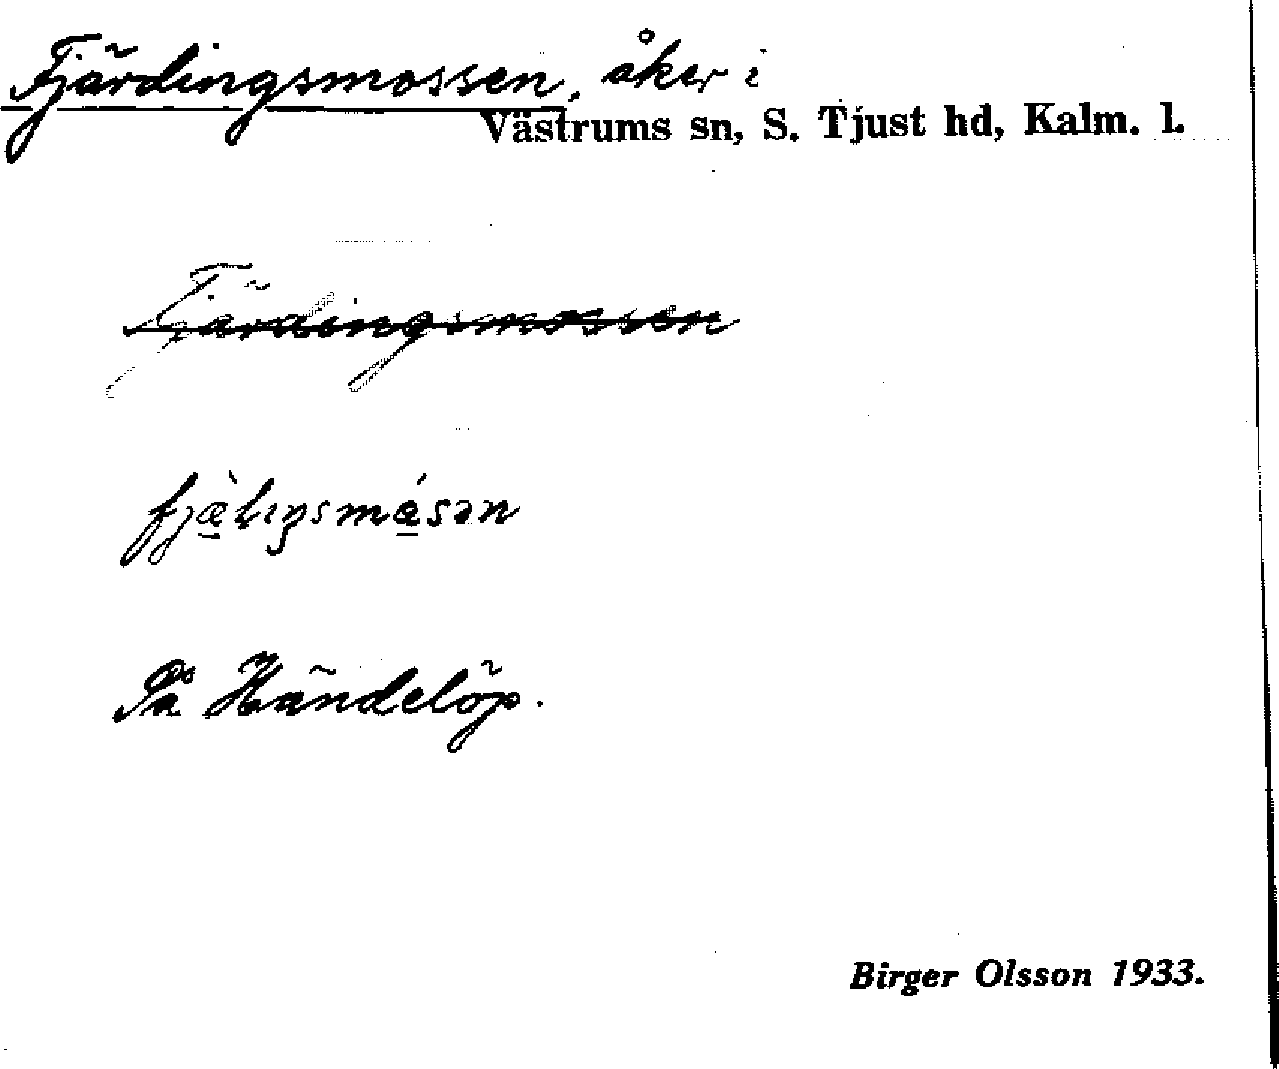 Fjärdingsmossen, åker i
Västrums sn, S. Tjust hd, Kalm. l.
Fjärdingsmossen
På Händelöp.
Birger Olsson 1933.